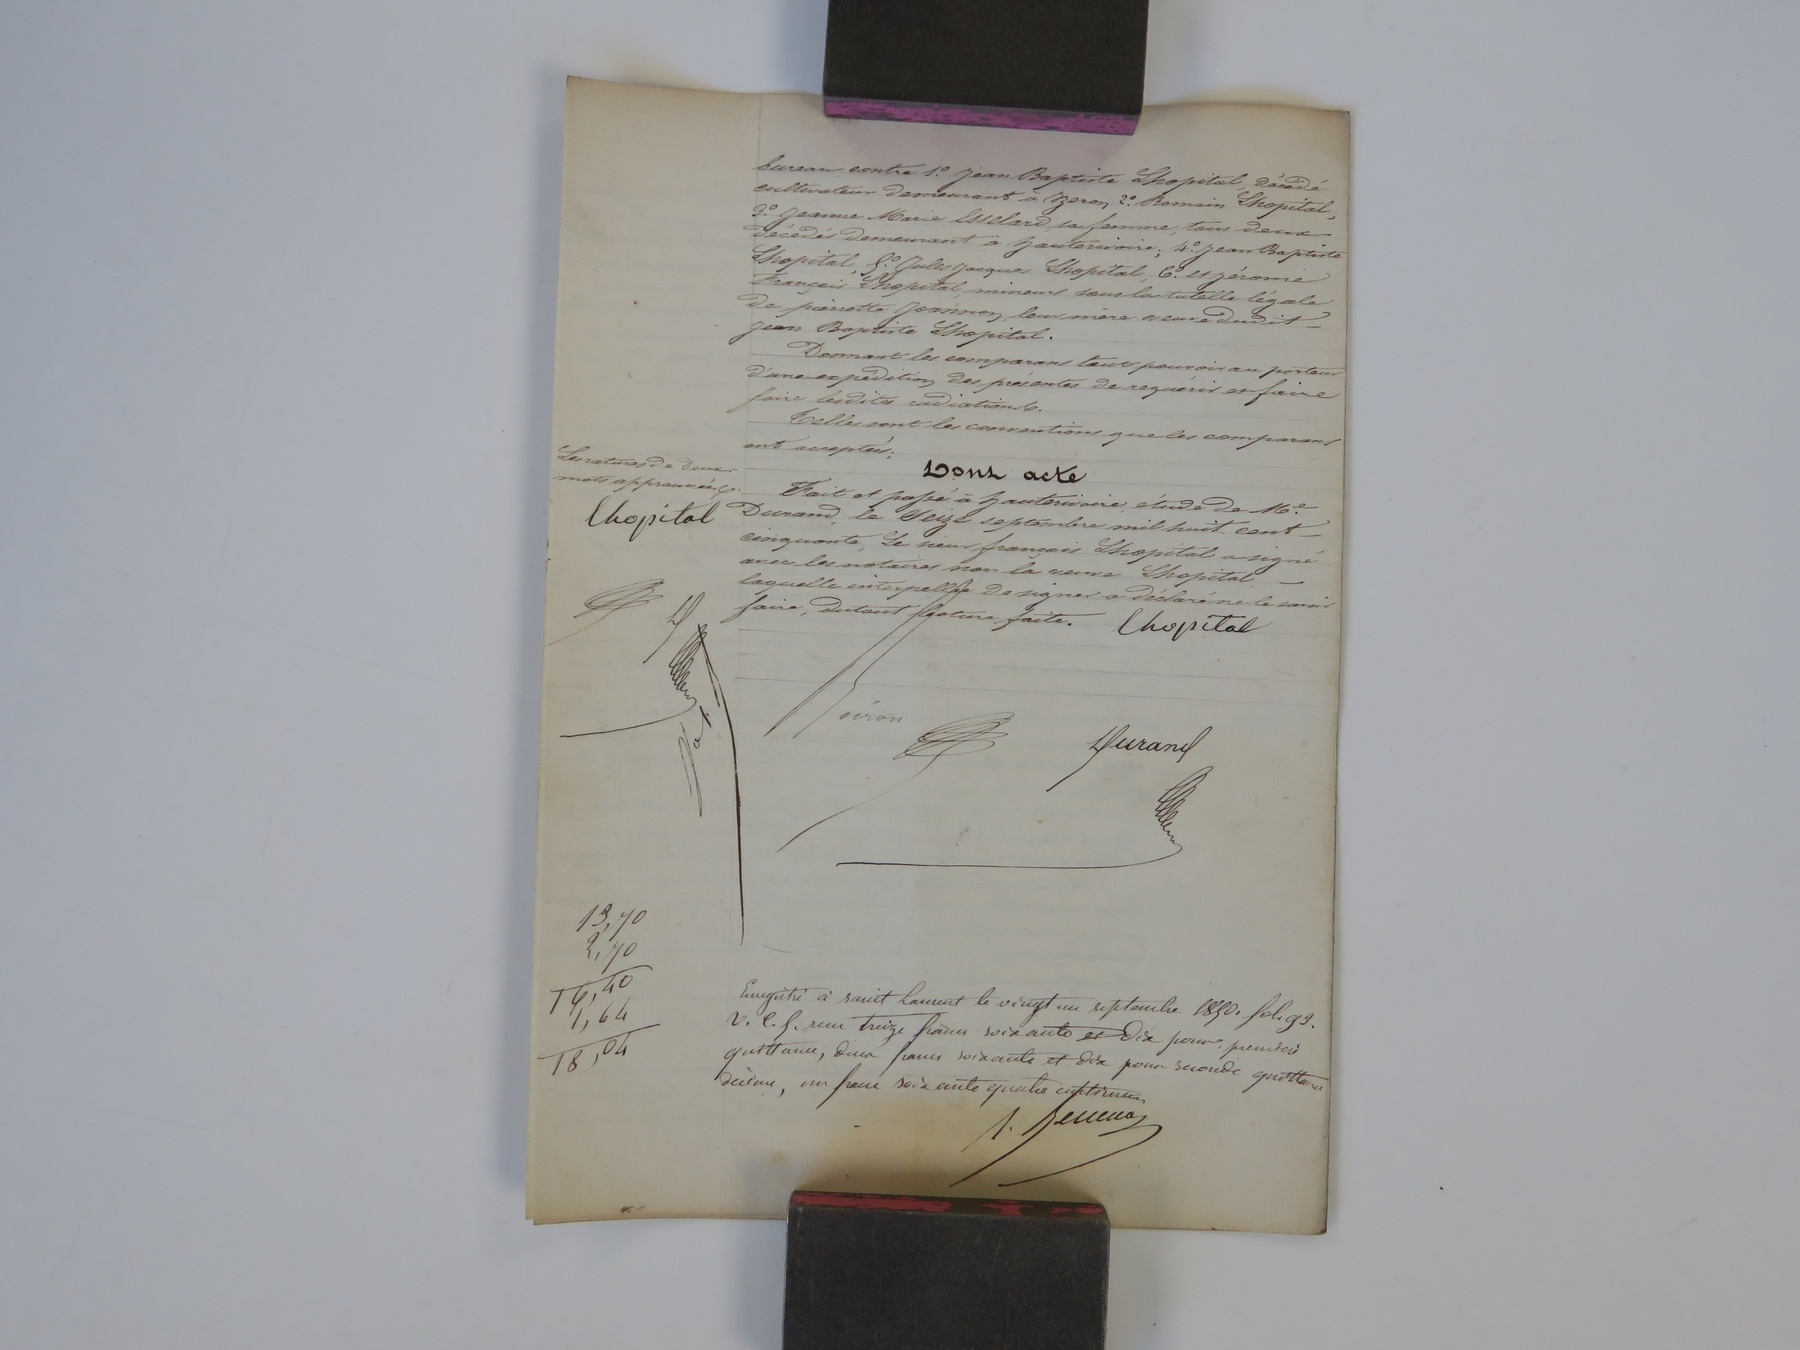 bureau contre 1.º Jean Baptiste Lhopital, décédé
cultivateur demeurant à Yzeron, 2.º Romain Lhopital,
3.º Jeanne Marie Esselard, sa femme, tous deux
décédés demeurant à hauterivoire; 4.º Jean Baptiste
Lhopital, 5.º Jules Jacques Lhopital, 6.º et Jérome
François Lhopital, mineurs sous la tutelle légale
de pierrette Joannon, leur mère veuve dudit
Jean Baptiste Lhopital.
Donnant les comparans tout pouvoir au porteur
d'une expédition des présentes de requérir et faire
faire lesdites radiations.
Telles sont les conventions que les comparans
ont acceptés;
Dont acte
Fait et passé à hauterivoire, étude de M.e
Durand, le Seize septembre mil huit cent
cinquante, Le sieur françois Lhopital a signé
avec les notaires non la veuve Lhopital
laquelle interpellée de signer a déclaré ne le savoir
faire, dutout lecture faite. Lhopital
Les ratures de deux
mots approuvées.
Lhopital
Durand
13,70
2,70
16,40
1,64
18,04
Enregistré à saint Laurent le vingt un septembre 1850. fol. 92.
v. C. 5. reçu treize francs soixante et dix pour premiere
quittance, deux francs soixante et dix pour seconde quittance
décime, un franc soixante quatre centimes